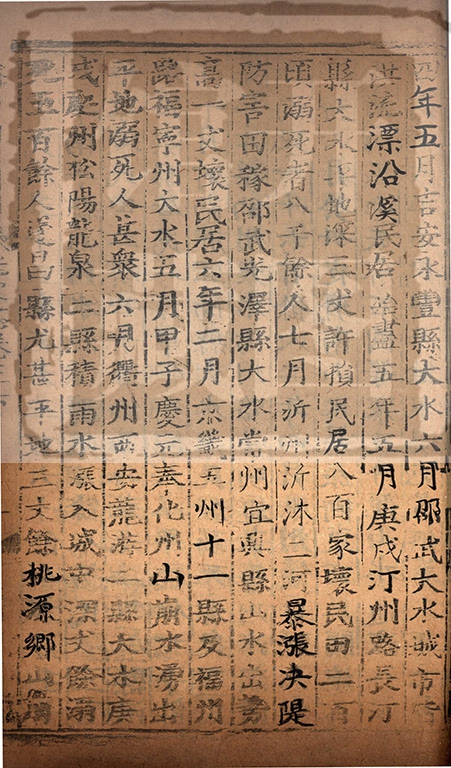 四年五月吉安永豐縣大水六月邵武大水城市皆
洪流漂沿溪民居殆盡五年五月庚戌汀州路長汀
縣大水平地深三丈許損民居八百家壞民田二百
頃溺死者八千餘人七月沂州沂沭二河暴漲決隄
防害田稼邵武光澤縣大水常州宜興縣山水出勢
高一丈壞民居六年二月京畿五州十一縣及福州
路福寧州大水五月甲子慶元奉化州山崩水湧出
平地溺死人甚衆六月衢州西安龍游二縣大水庚
戌處州松陽龍泉二縣積雨水漲入城中深丈餘溺
死五百餘人遂昌縣尤甚平地三丈餘桃源鄉山崩